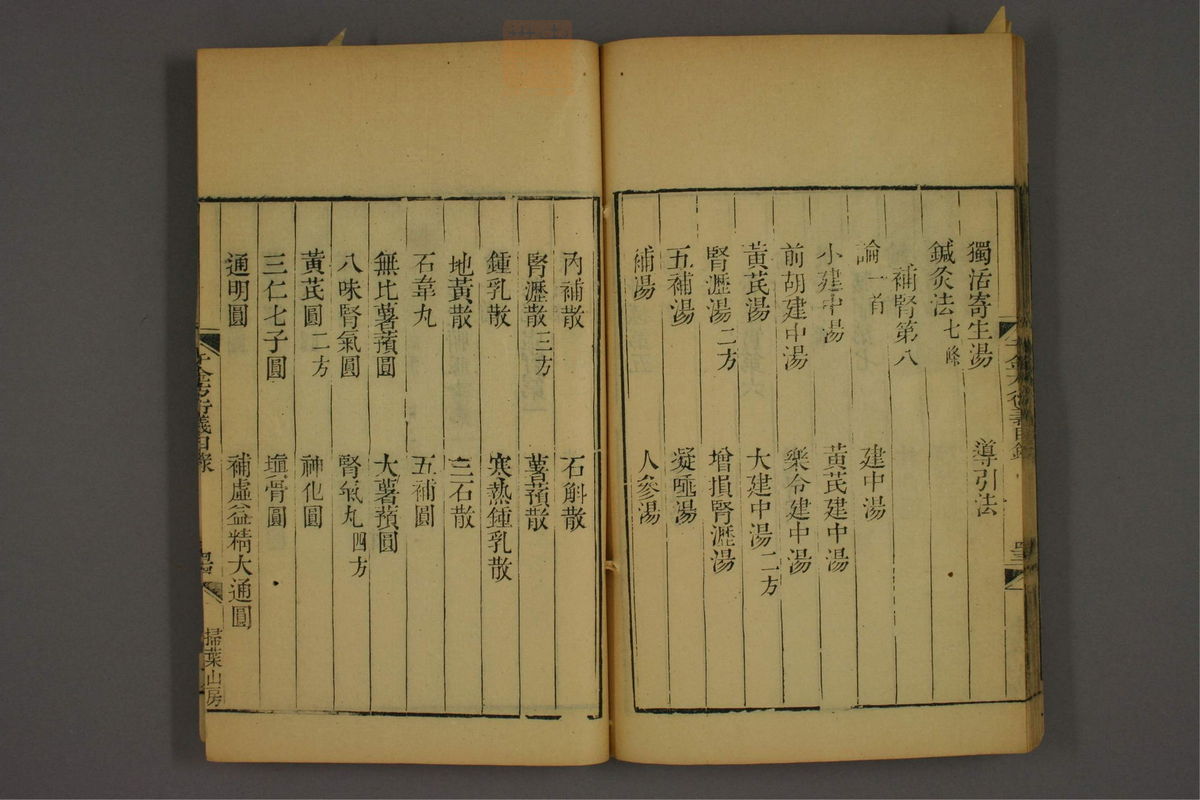 獨活寄生湯 導引法
鍼灸法七條
補腎第八
論一首 建中湯
小建中湯 黃芪建中湯
前胡建中湯 樂令建中湯
黃芪湯 大建中湯二方
腎瀝湯二方 增損腎瀝湯
五補湯 凝唾湯
補湯 人參湯
內補散 石斛散
腎瀝散三方 薯蕷散
鍾乳散 寒熱鍾乳散
地黃散 三石散
石韋丸 五補圓
無比薯蕷圓 大薯蕷圓
八味腎氣圓 腎氣丸四方
黃芪圓二方 神化圓
三仁七子圓 填骨圓
通明圓 補虛益精大通圓
千金方衍義目錄 掃葉山房